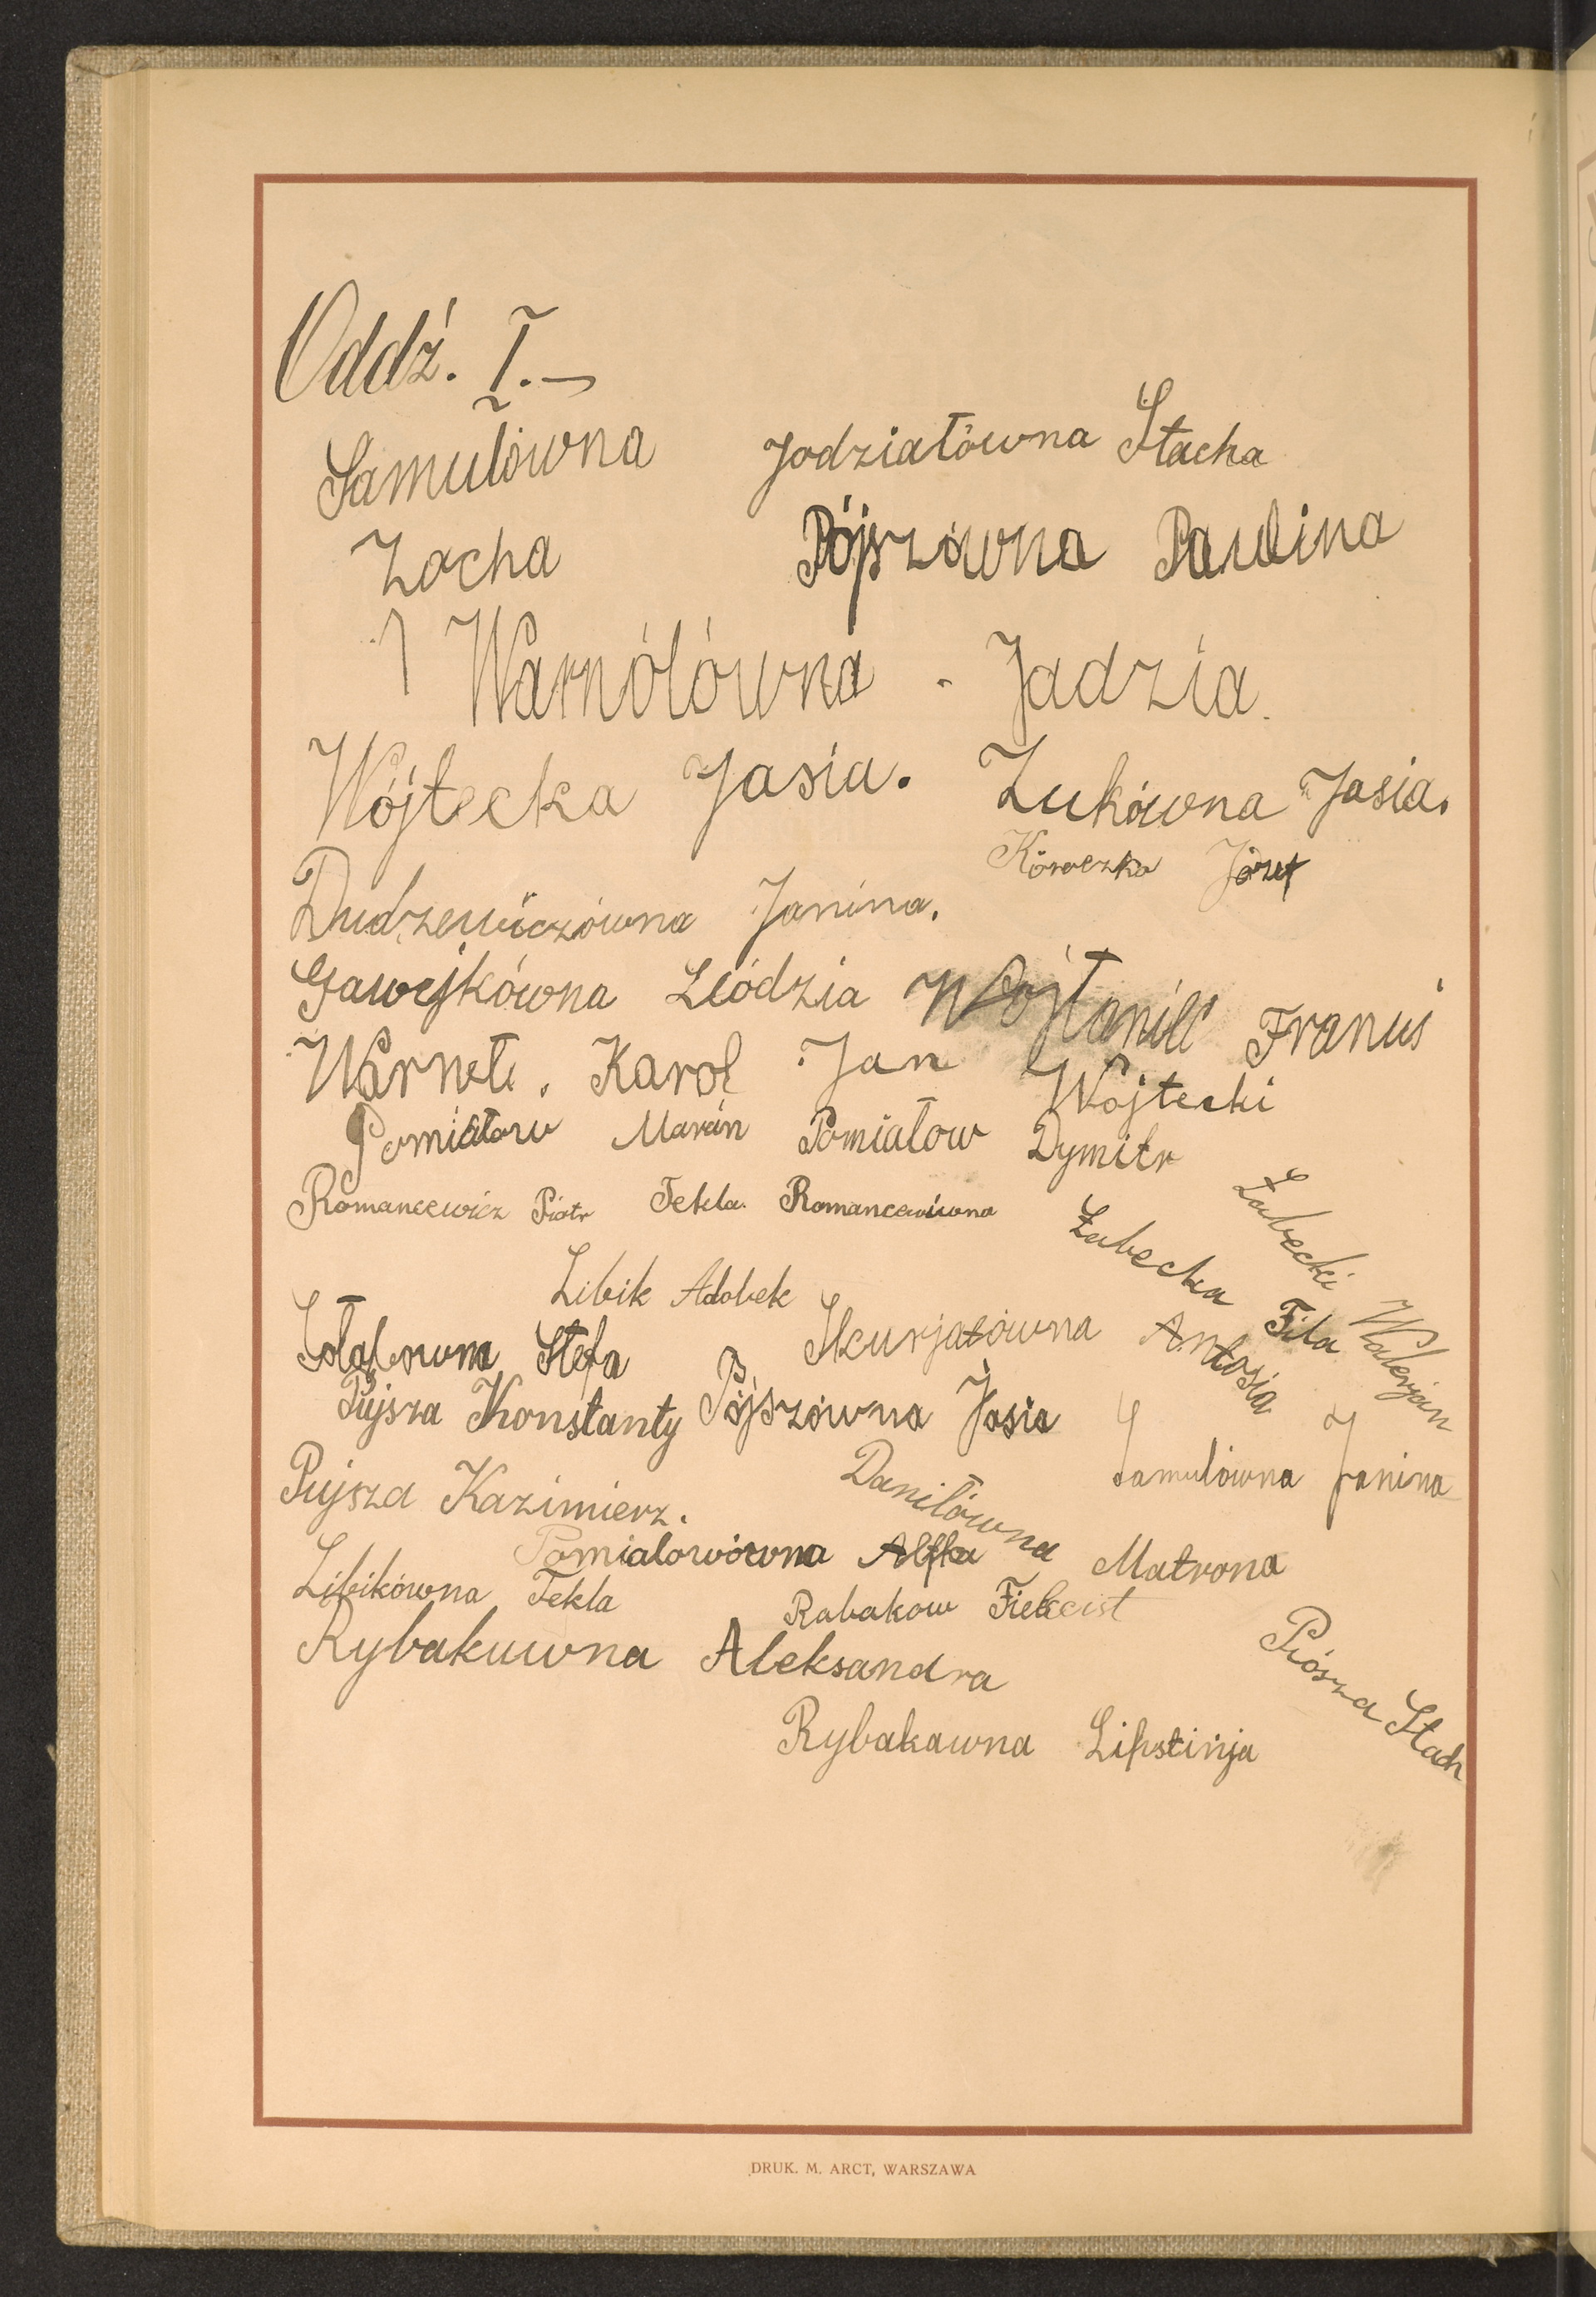 Oddź. I.—
Samulówna Jodziałówna Stacha
Zocha Pójszówna Paulina
Warnólówna - Jadzia.
Wójtecka Jasia. Żukówna Jasia.
Józef
Dudzewiczówna Janina.
Gawejkówna Lódzia Franuś
Karol Jan Wojtecki
Pomiałow Pomiałow Dymitr
Romancewicz Piotr Tekla Romancewiówna
Łabecka Fila Łabecki Walerjan
Libik Adobek
Stefa Skurjatówna Antosia
Pujsza Konstanty Pójszówna Jasia
Samulówna Janina
Pujsza Kazimierz.
Daniłówna Matrona
Pomialowówna
Libikówna Tekla Rabakow
Rybakuwna Aleksandra
Piósza Stach
Rybakawna Lipstinja
DRUK. M. ARCT, WARSZAWA